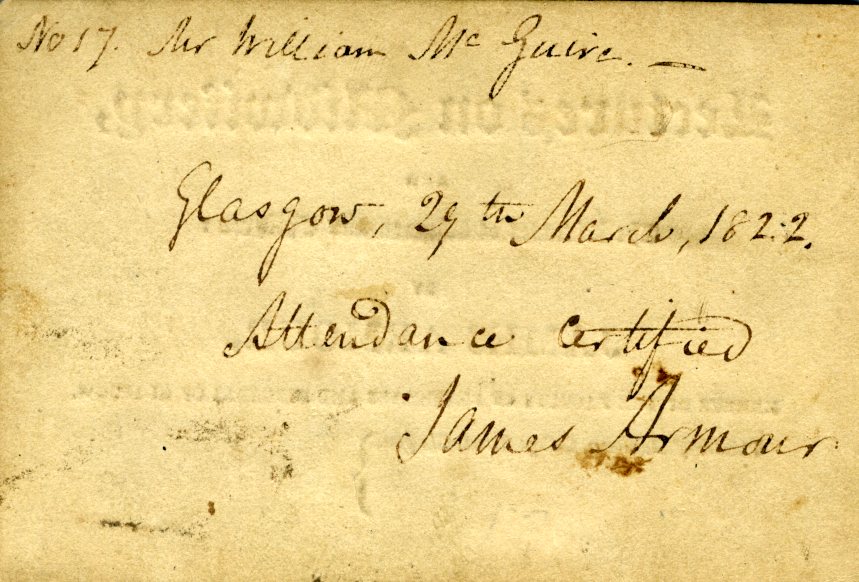 No 17. Mr William Mc Guire. —
Lectures on Midwifery,
Glasgow, 29th March, 1822.
Attendance certified
James Armour